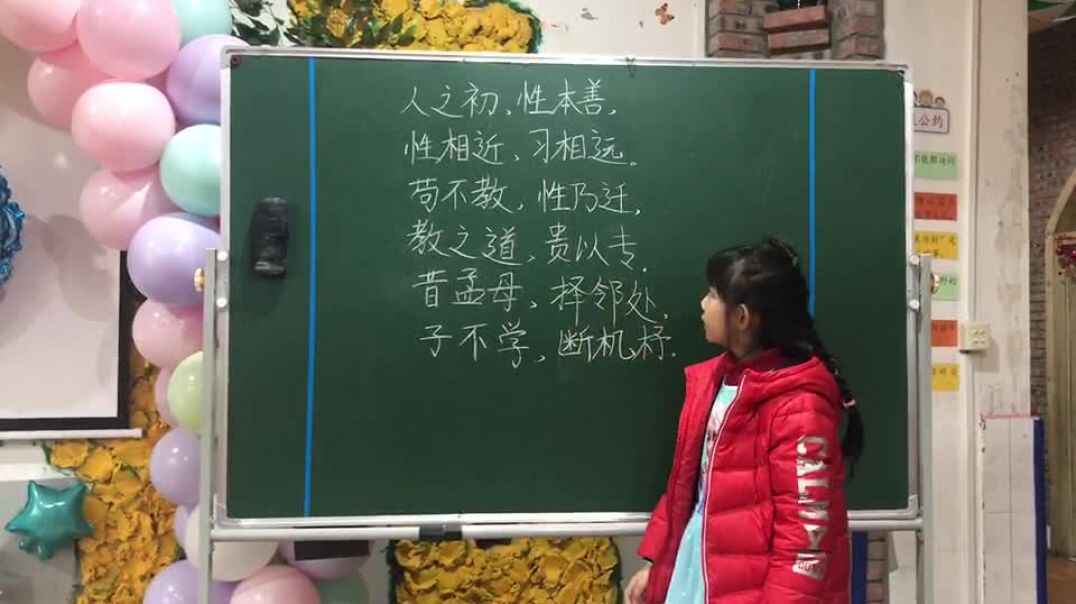 人之初、性本善,
性相近、习相远.
苟不教,性乃迁,
教之道,贵以专.
昔孟母、择邻处,
子不学,断机杼.
公约
CALMAN